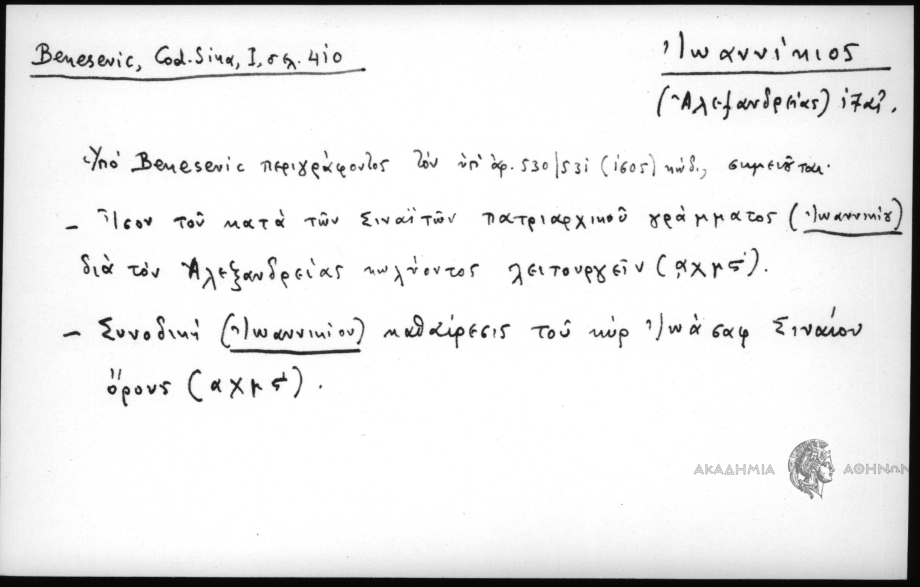 Benesevic, Cod. Sina, I, σελ. 410
Ἰωαννίκιος
(Ἀλεξανδρείας) ιζ αἰ.
Ὑπό Benesevic περιγράφοντος τόν ὑπ' ἀρ. 530/531 (1605) κώδ., σημειοῦται·
- Ἴσον τοῦ κατά τῶν Σιναϊτῶν πατριαρχικοῦ γράμματος (Ἰωαννικίου)
διά τόν Ἀλεξανδρείας κωλύοντος λειτουργεῖν (͵αχμϛ´).
- Συνοδική (Ἰωαννικίου) καθαίρεσις τοῦ κύρ Ἰωάσαφ Σιναίου
ὄρους (αχμϛ´).
ΑΚΑΔΗΜΙΑ ΑΘΗΝΩΝ